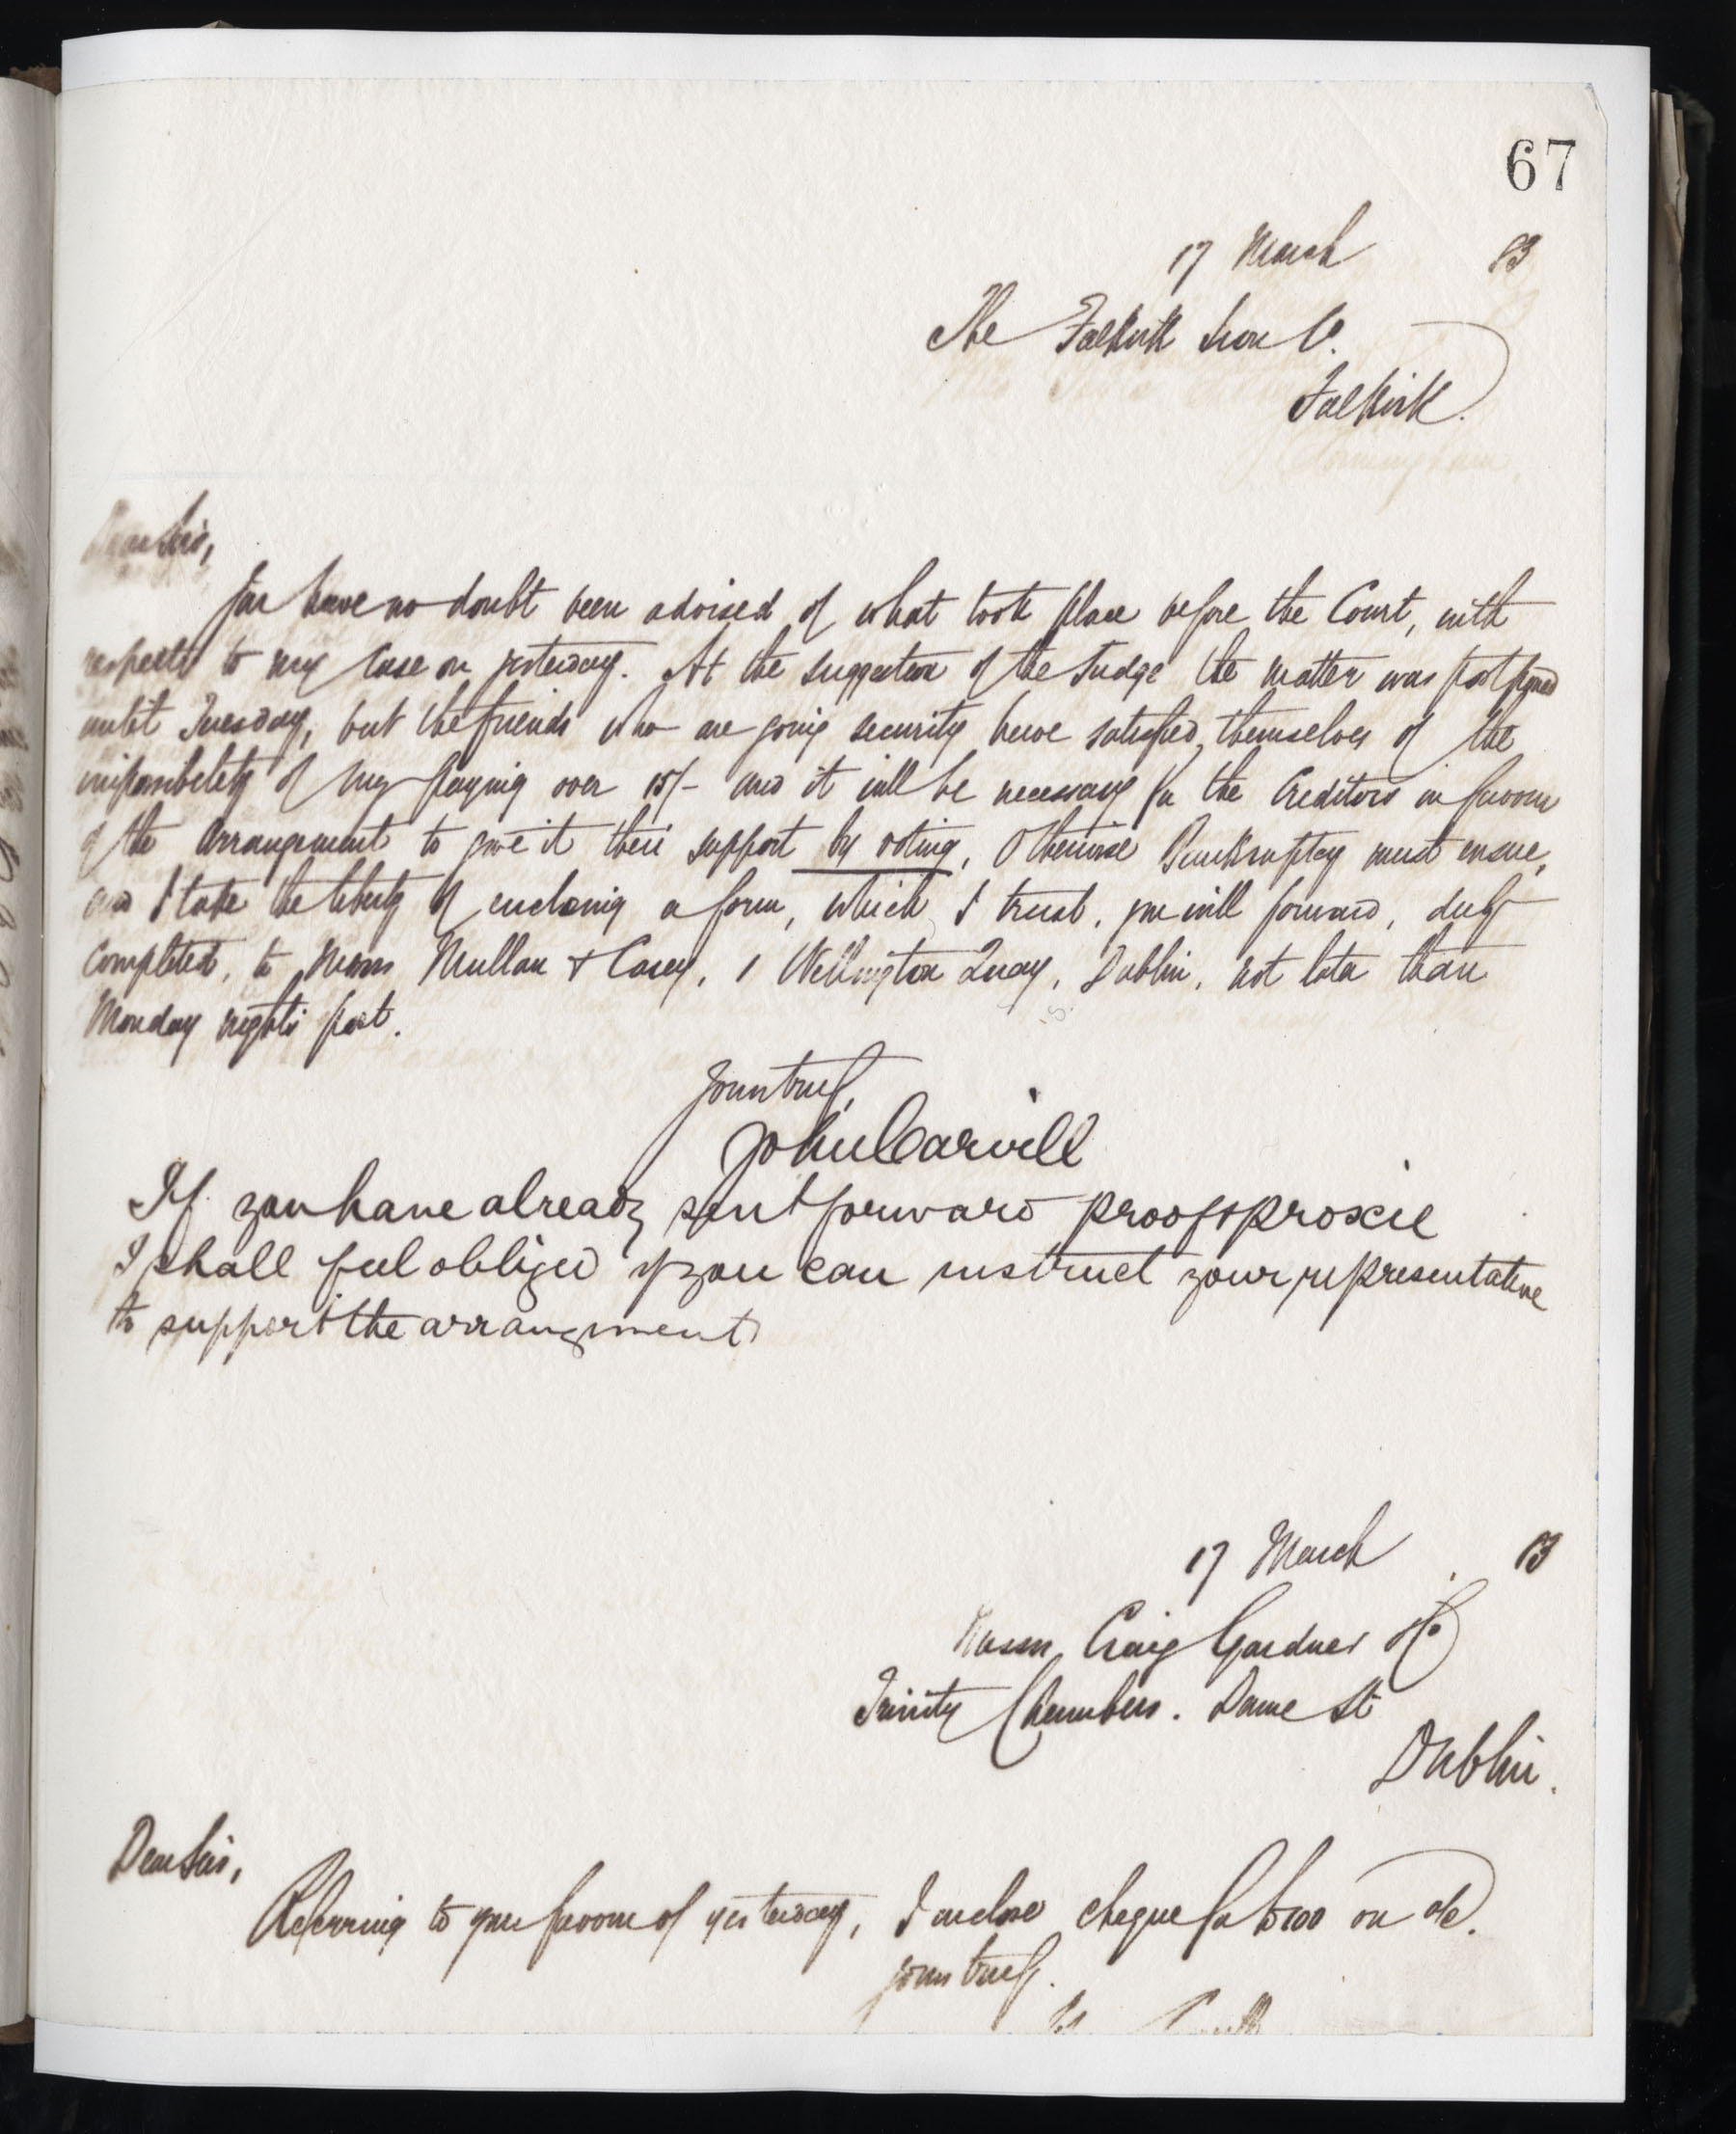 67
17 March 83
The Falkirk Iron Co.
Falkirk.
Dear Sirs,
You have no doubt been advised of what took place before the Court, with
respects to my case on yesterday. At the suggestion of the Judge the matter was postponed
until Tuesday, but the friends who are going security have satisfied themselves of the
impossibility of my paying over 15/- and it will be necessary for the Creditors in favour
of the arrangement to give it their support by voting, Otherwise Bankruptcy must ensue,
and I take the liberty of enclosing a form, which, I trust, you will forward, duly
completed, to Messrs Mullan & Casey, 1 Wellington Quay, Dublin, not later than
Monday nights post.
Yours truly,
John Carvill
If you have already sent forward proof & proxie
I shall feel obliged if you can instruct your representative
to support the arrangment
17 March 83
Messrs Craig Gardner & Co
Trinity Chambers. Dame St
Dublin.
Dear Sirs,
Referring to your favour of yesterday, I enclose cheque for on a/c.
Yours truly.